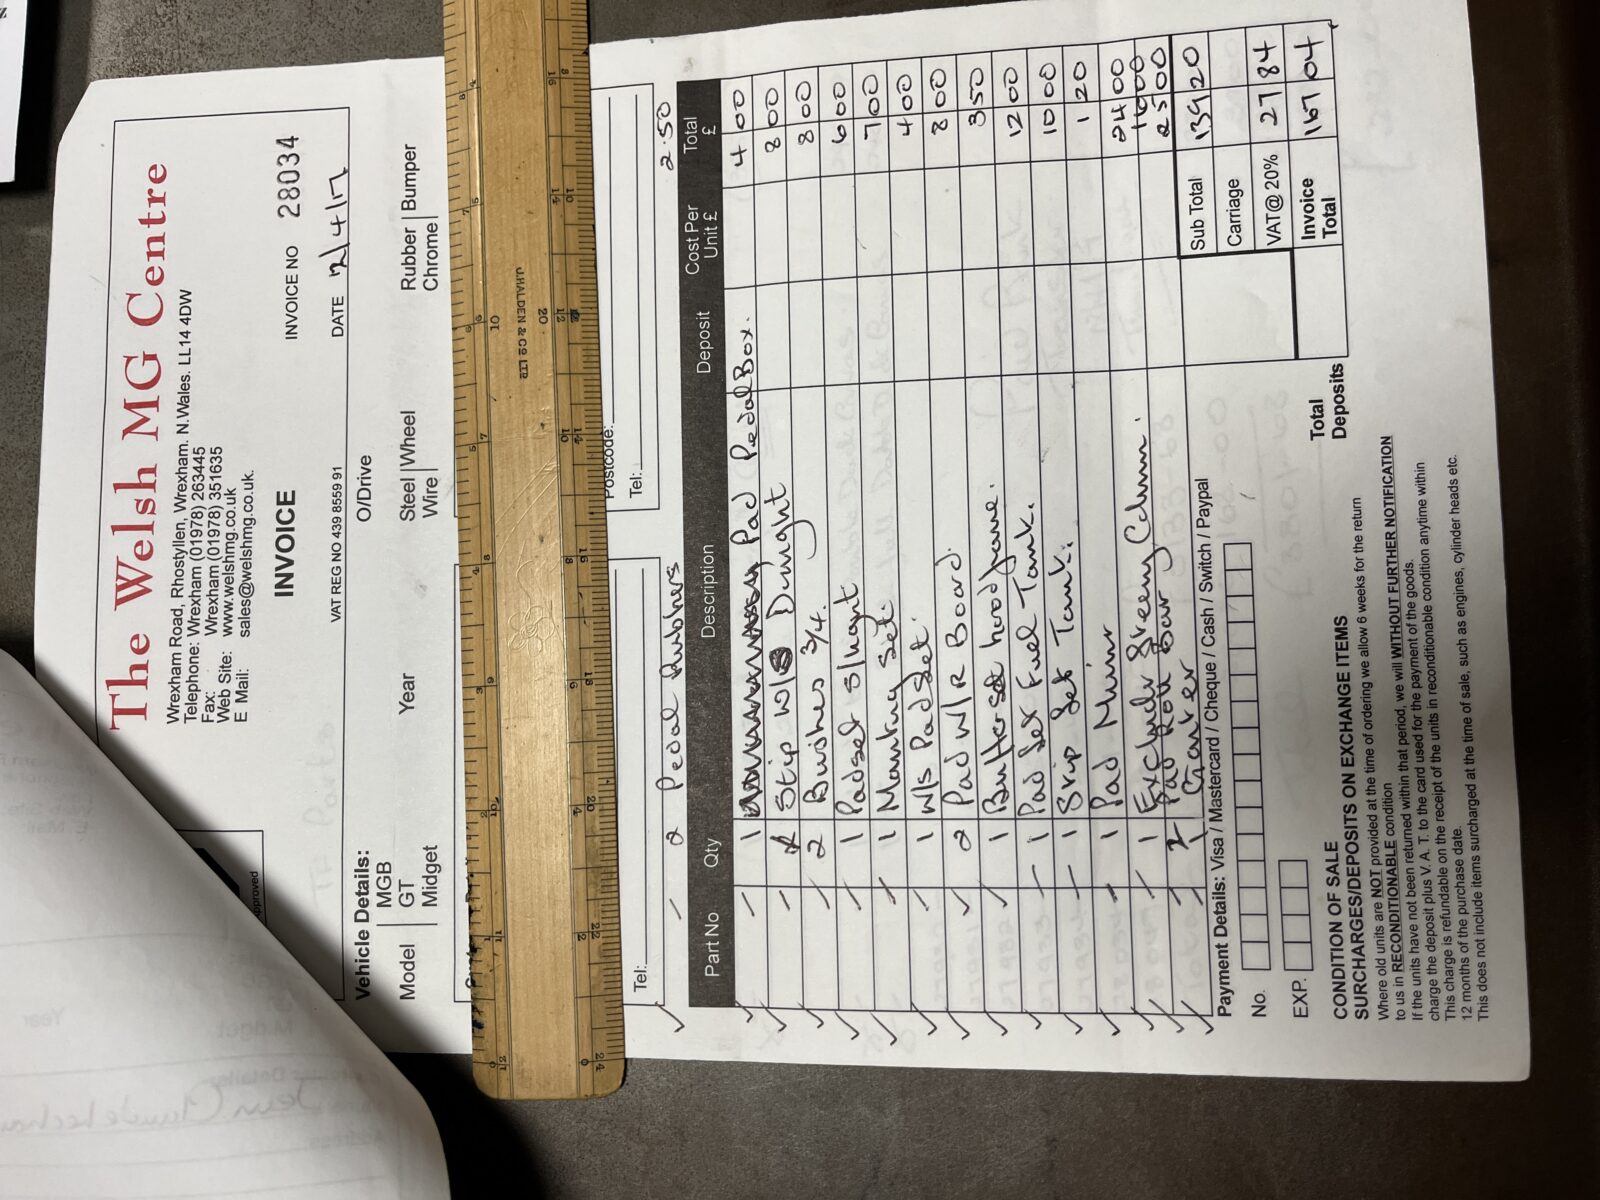 The Welsh MG Centre
Wrexham Road, Rhostyllen, Wrexham. N.Wales. LL14 4DW
Telephone: Wrexham (01978) 263445
Fax: Wrexham (01978) 351635
Web Site: www.welshmg.co.uk
E Mail: sales@welshmg.co.uk.
INVOICE
INVOICE NO 28034
VAT REG NO 439 8559 91
DATE 12/4/17
Vehicle Details:
O/Drive
Model MGB GT Midget
Year
Steel Wire Wheel
Rubber Chrome Bumper
J.HALDEN & CO LTD
Postcode:
Tel:
Tel:
2 Pedal Rubbers 2.50
Part No Qty Description Deposit Cost Per Unit £ Total £
1 Pad Pedal Box. 4 00
Stip W/S 8 00
2 Bushes 3/4. 8 00
1 Padset 6 00
1 Set 7 00
1 W/S Pad Set. 4 00
2 Pad W/R Board. 8 00
1 3 50
1 Pad Set Fuel Tank. 12 00
1 Strip Set Tank. 10 00
1 Pad 1 20
1 Column. 24 00
Pad Roll Bar 16 00
1 Gaiter 25 00
Sub Total 139 20
Carriage
VAT@ 20% 27 84
Invoice Total 167 04
Total Deposits
Payment Details: Visa / Mastercard / Cheque / Cash / Switch / Paypal
No.
EXP.
CONDITION OF SALE
SURCHARGES/DEPOSITS ON EXCHANGE ITEMS
Where old units are NOT provided at the time of ordering we allow 6 weeks for the return
to us in RECONDITIONABLE condition
If the units have not been returned within that period, we will WITHOUT FURTHER NOTIFICATION
charge the deposit plus V. A. T. to the card used for the payment of the goods.
This charge is refundable on the receipt of the units in reconditionable condition anytime within
12 months of the purchase date.
This does not include items surcharged at the time of sale, such as engines, cylinder heads etc.